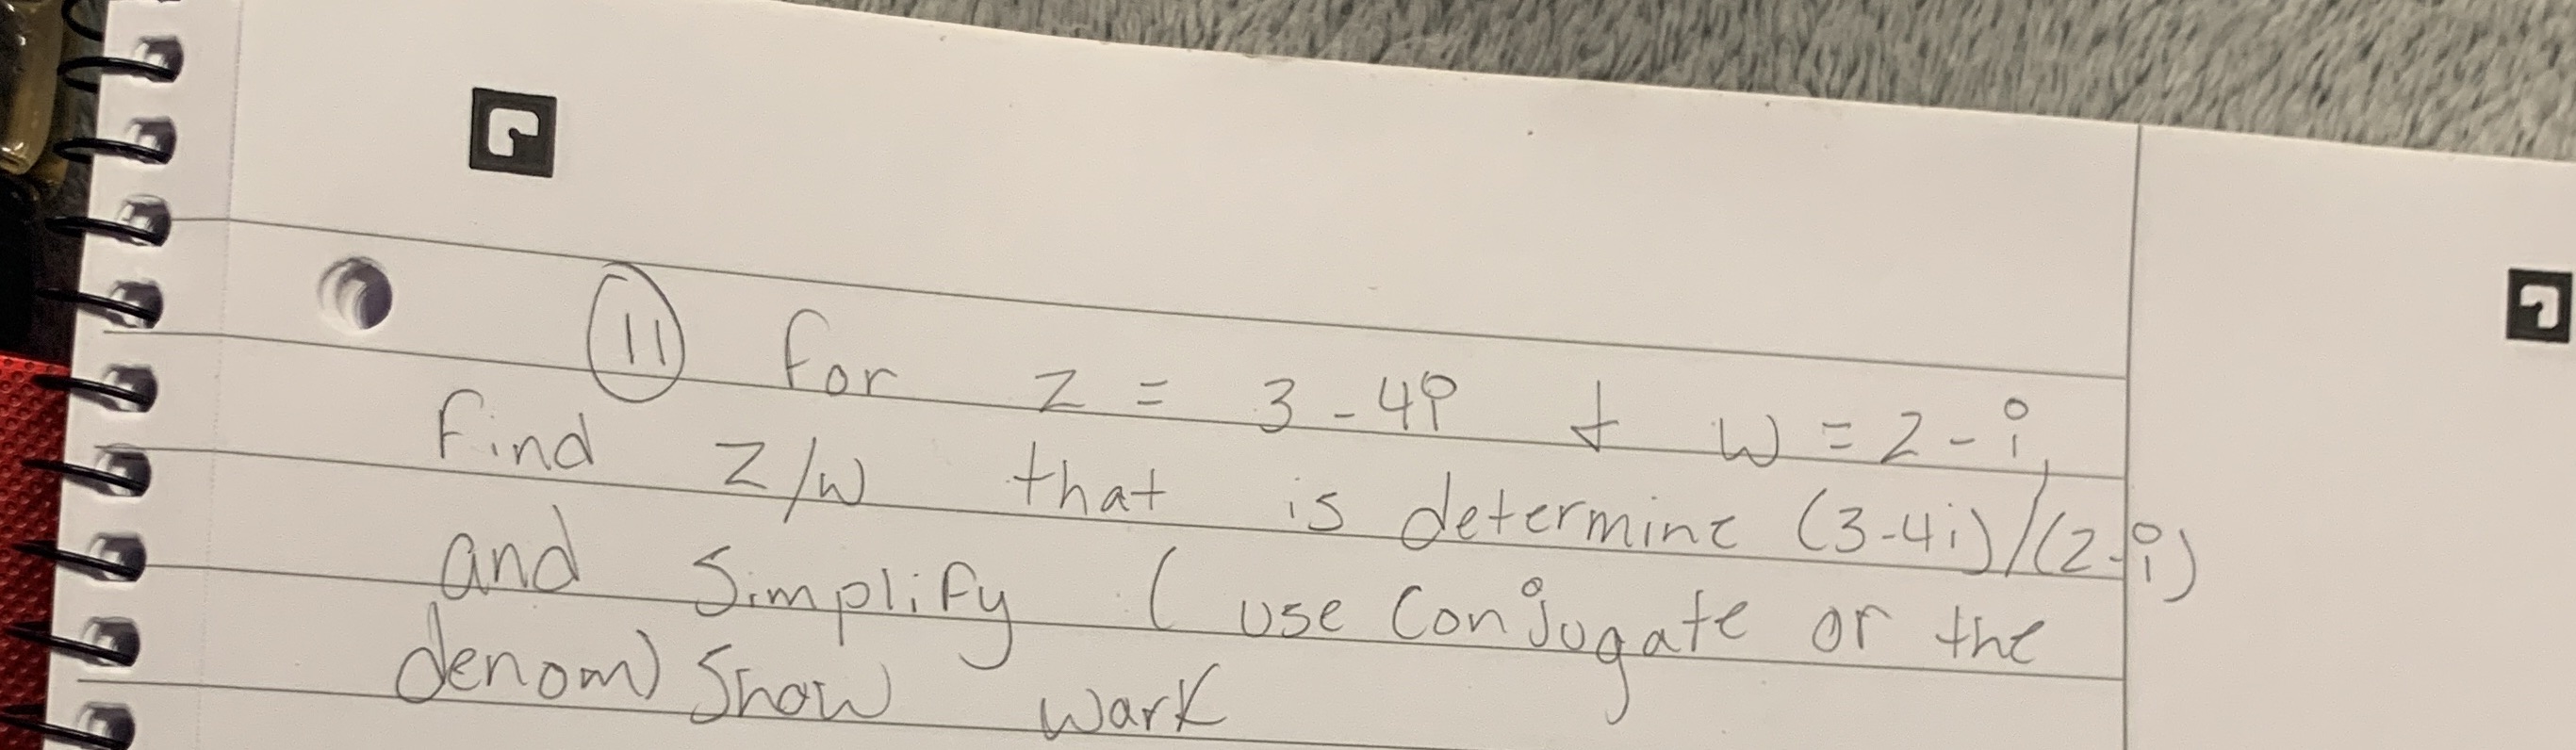 11 for z = 3 - 4i + w = 2 - i,
find z/w that is determine (3-4i)/(2-i)
and simplify ( use conjugate or the
denom) show wark